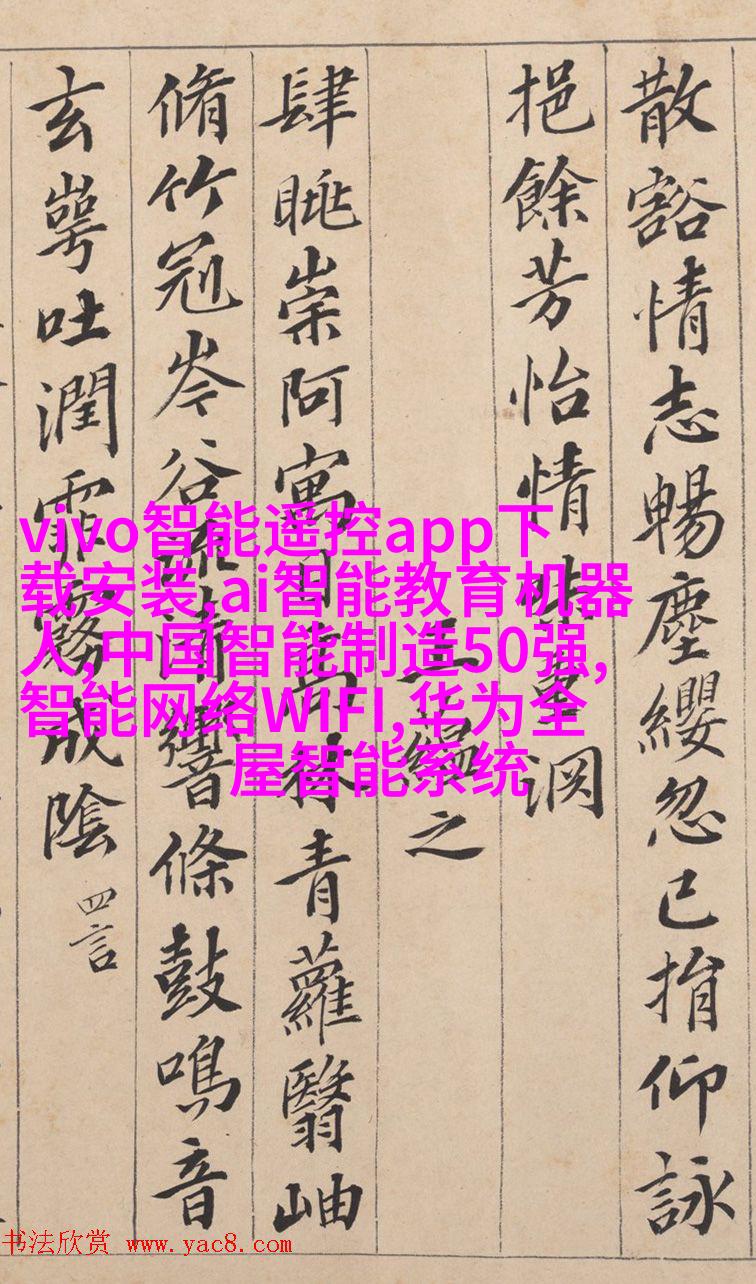 散豁情志暢塵纓忽已捐仰詠
挹餘芳怡情味重淵
王蘊之
肆眺崇阿寓目高林青蘿翳岫
脩竹冠岑谷流清響條鼓鳴音
玄崿吐潤霏霧成陰 四言
vivo智能遥控app下
载安装,ai智能教育机器
人,中国智能制造50强,
智能网络WIFI,华为全
屋智能系统
书法欣赏 www.yac8.com